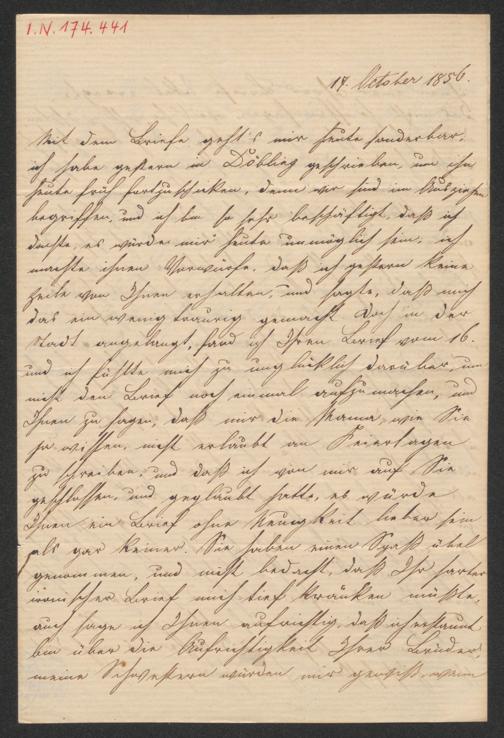 I.N. 174.441
17. October 1856.
Mit dem Briefe geht's mir heute sonderbar,
ich habe gestern in Döbling geschrieben, um ihn
heute früh fortzuschicken, denn wir sind im Ausziehen
begriffen, und ich bin so sehr beschäftigt, daß ich
dachte, es würde mir heute unmöglich sein, ich
machte ihnen Vorwürfe, daß ich gestern keine
Zeile von Ihnen erhalten, und sagte, daß mich
das ein wenig traurig gemacht. Doch in der
Stadt angelangt, fand ich Ihren Brief vom 16.
und ich fühlte mich zu unglücklich darüber, um
nicht den Brief noch einmal aufzumachen, und
Ihnen zu sagen, daß mir die Mama, wie Sie
ja wissen, nicht erlaubt an Feiertagen
zu schreiben, und daß ich von mir auf Sie
geschlossen, und geglaubt hatte, es würde
Ihnen ein Brief ohne Neuigkeit lieber sein
als gar keiner. Sie haben einen Spaß übel
genommen, und nicht bedacht, daß Ihr harter
ironischer Brief mich tief kränken müßte,
auch sage ich Ihnen aufrichtig, daß ich erstaunt
bin über die Aufrichtigkeit Ihrer Brüder,
meine Schwestern würden mir gewiß, wenn